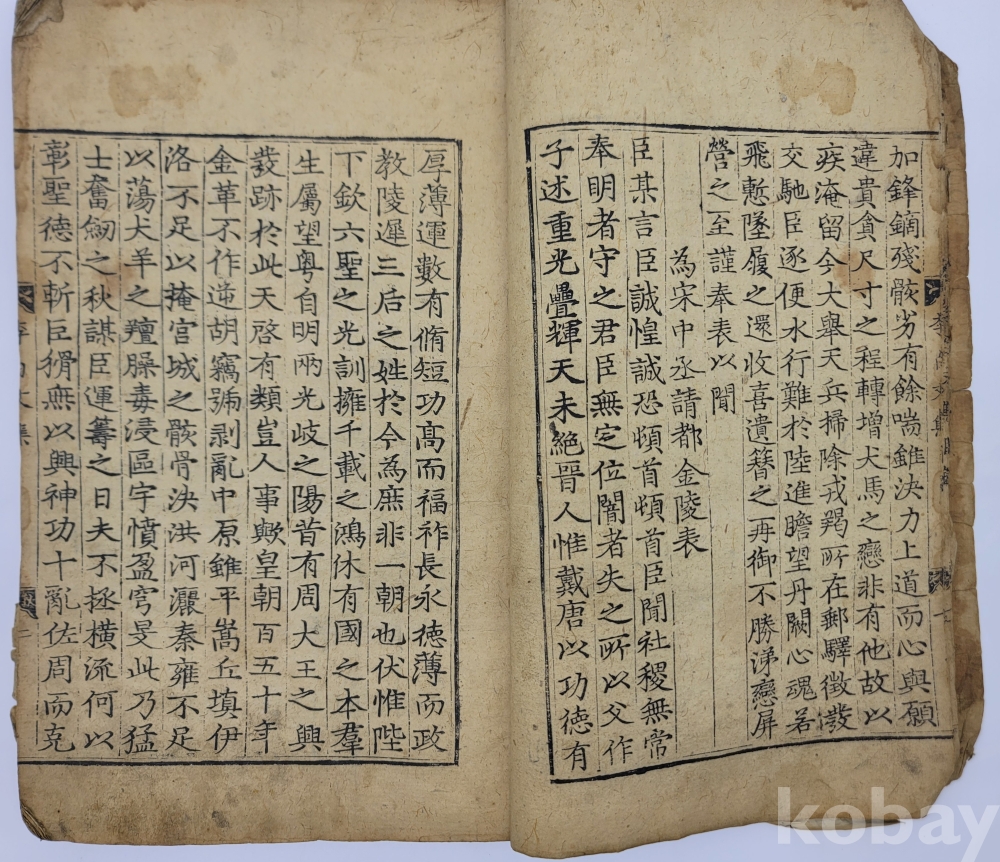 加鋒鏑殘骸劣有餘喘雖決力上道而心與願
違貴貪尺寸之程轉增犬馬之戀非有他故以
疾淹留今大舉天兵掃除戎羯所在郵驛徵發
交馳臣逐便水行難於陸進瞻望丹闕心魂若
飛慙墜履之還收喜遺簪之再御不勝涕戀屏
營之至謹奉表以聞
為宋中丞請都金陵表
臣某言臣誠惶誠恐頓首頓首臣聞社稷無常
奉明者守之君臣無定位闇者失之所以父作
子述重光疊輝天未絕晉人惟戴唐以功德有
厚薄運數有脩短功高而福祚長永德薄而政
教陵遲三后之姓於今為庶非一朝也伏惟陛
下欽六聖之光訓擁千載之鴻休有國之本羣
生屬望粵自明兩光岐之陽昔有周大王之興
發跡於此天啓有類豈人事歟皇朝百五十年
金革不作逆胡竊號剥亂中原雖平嵩丘填伊
洛不足以掩宮城之骸骨決洪河灑秦雍不足
以蕩犬羊之羶臊毒浸區宇憤盈穹旻此乃猛
士奮劒之秋謀臣運籌之日夫不拯橫流何以
彰聖德不斬巨猾無以興神功十亂佐周而克
kobay